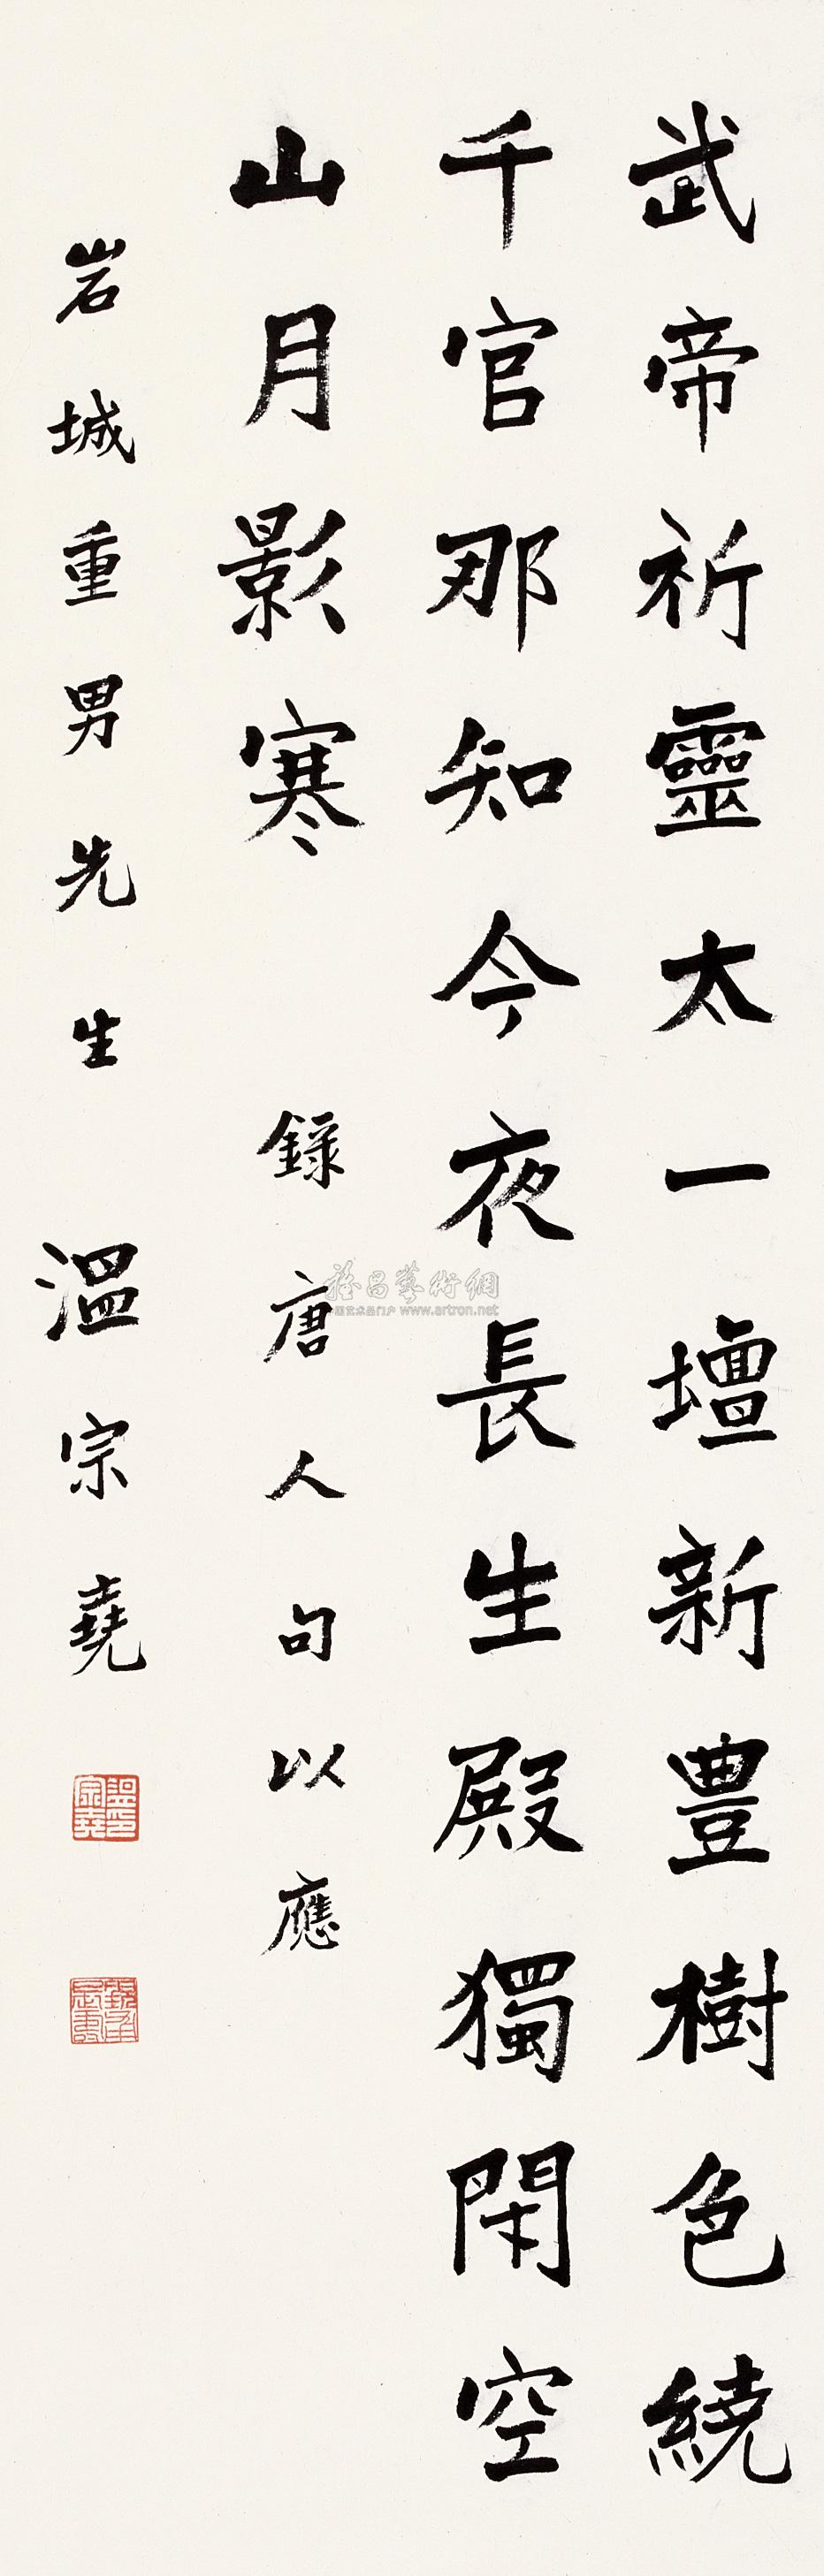 武帝祈靈太一壇新豊樹色繞
千官那知今夜長生殿獨閑空
山月影寒
錄唐人句以應
岩城重男先生 溫宗堯
雅昌藝術網
www.artron.net